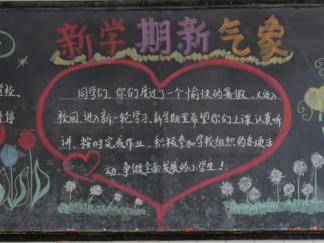 新学期新气象
同学们,你们度过了一个愉快的暑假,又返
校园,进入新一轮学习,新学期里希望你们上课认真听
讲,按时完成作业,积极参加学校组织的各项活
动,争做全面发展的小学生!